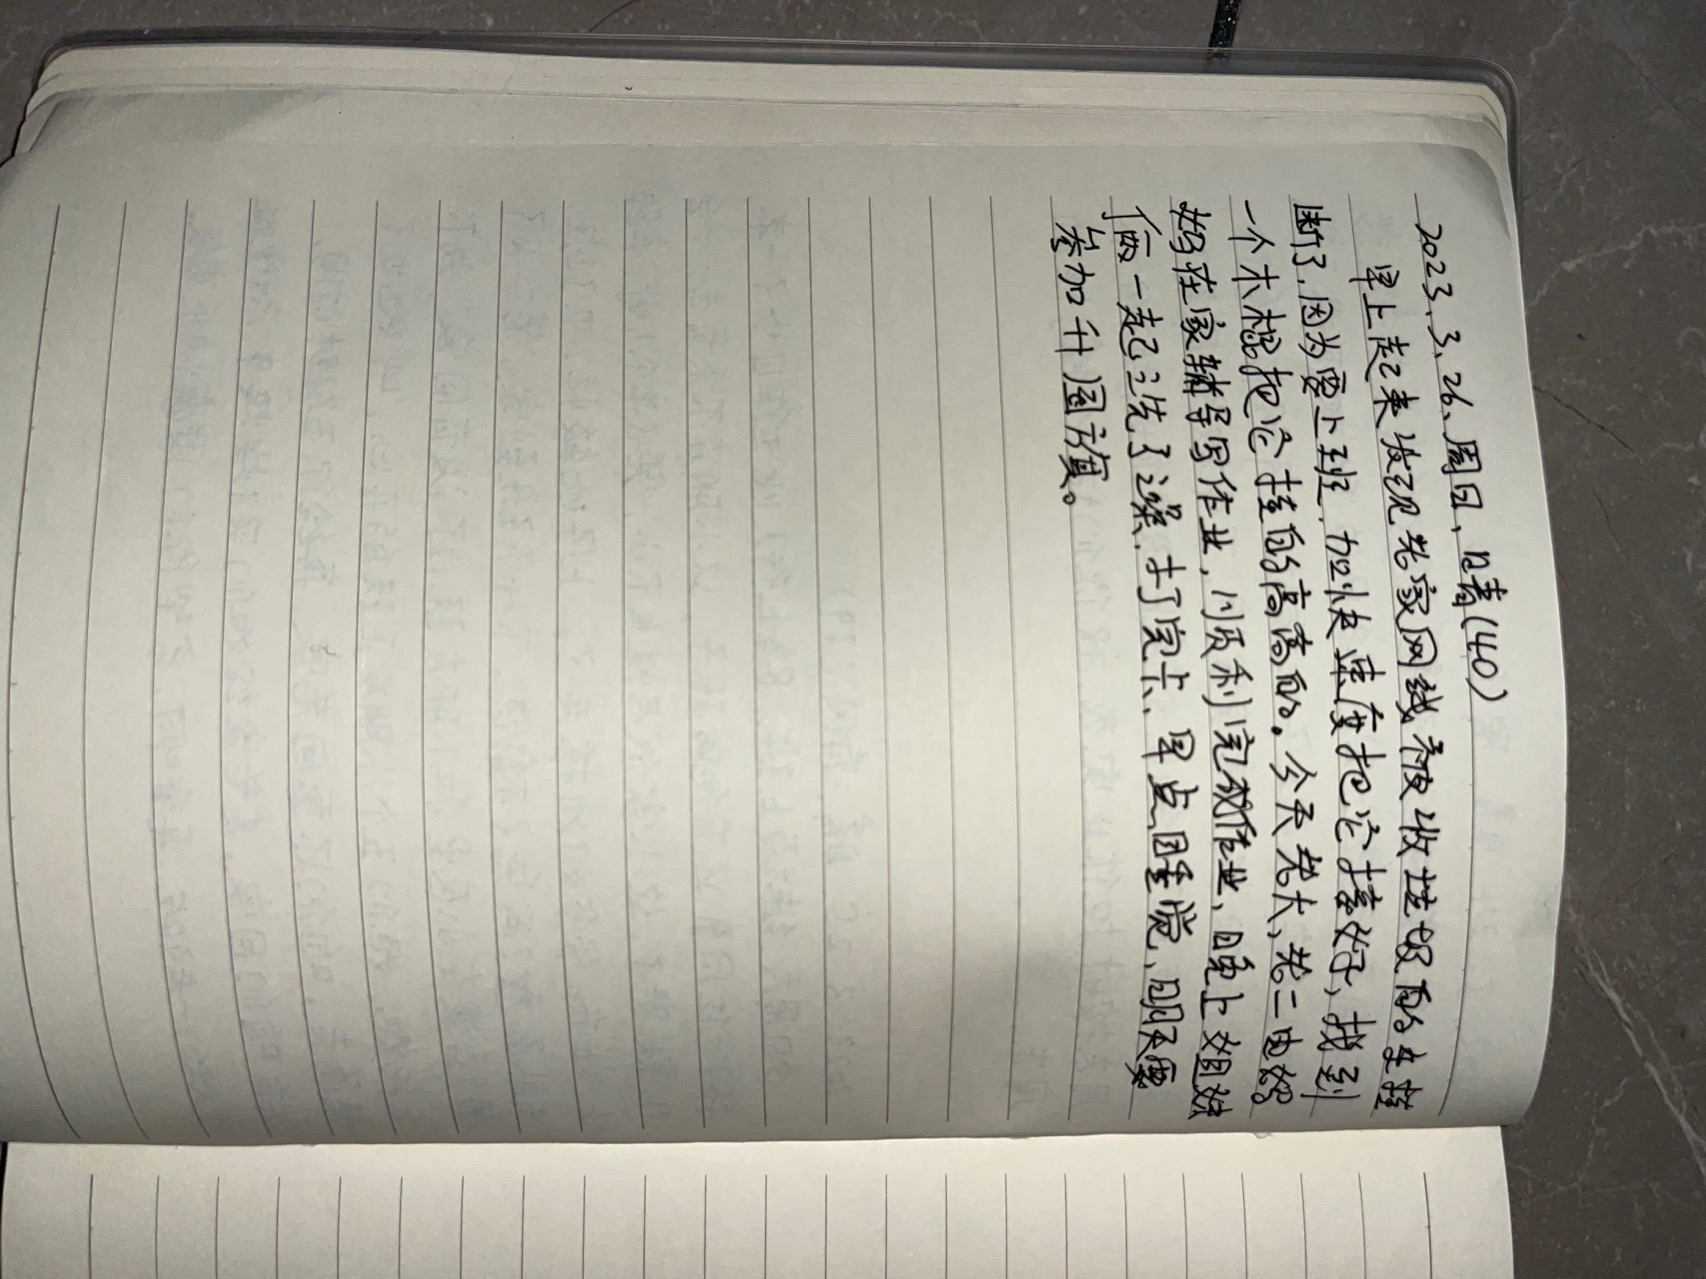 2023、3、26、周日、晴(40)
早上起来发现老家网线被收垃圾的车挂
断了,因为要上班,加快速度把它接好,找到
一个木棍把它挂的高高的。今天老大、老二由奶
奶在家辅导写作业,顺利完成作业,晚上姐妹
俩一起洗了澡,忙完点、早点睡觉,明天要
参加升国旗。